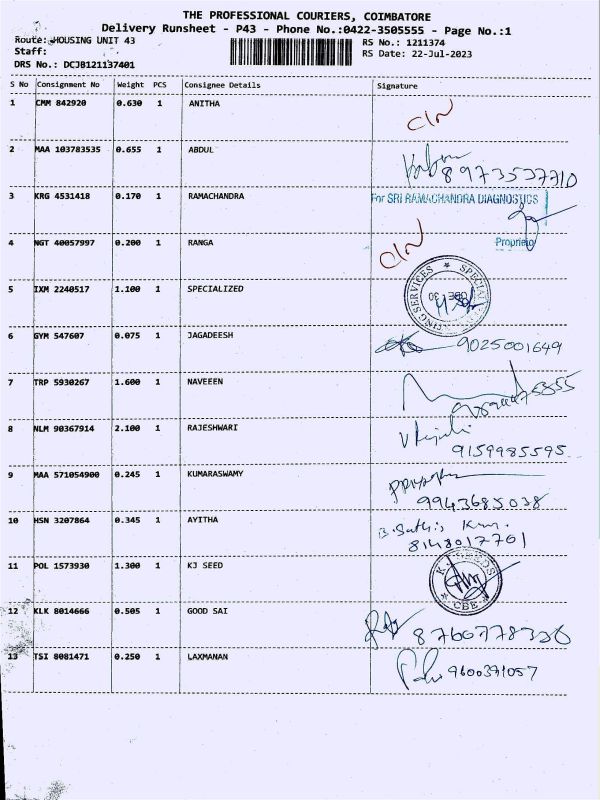 THE PROFESSIONAL COURIERS, COIMBATORE
Delivery Runsheet - P43 - Phone No.:0422-3505555 - Page No.:1
Route: HOUSING UNIT 43
RS No.: 1211374
Staff:
RS Date: 22-Jul-2023
DRS No.: DCJB121137401
S No Consignment No Weight PCS Consignee Details Signature
1 CMM 842920 0.630 1 ANITHA
2 MAA 103783535 0.655 1 ABDUL 8973537710
3 KRG 4531418 0.170 1 RAMACHANDRA For SRI RAMACHANDRA DIAGNOSTICS
Proprieto
4 NGT 40057997 0.200 1 RANGA
5 IXM 2240517 1.100 1 SPECIALIZED
6 GYM 547607 0.075 1 JAGADEESH 9025001649
7 TRP 5930267 1.600 1 NAVEEEN
8 NLM 90367914 2.100 1 RAJESHWARI
9159985595
9 MAA 571054900 0.245 1 KUMARASWAMY
9943685038
10 HSN 3207864 0.345 1 AYITHA
8148017701
11 POL 1573930 1.300 1 KJ SEED K.J. SEEDS
CBE
12 KLK 8014666 0.505 1 GOOD SAI 8760778326
13 TSI 8081471 0.250 1 LAXMANAN 9600391057